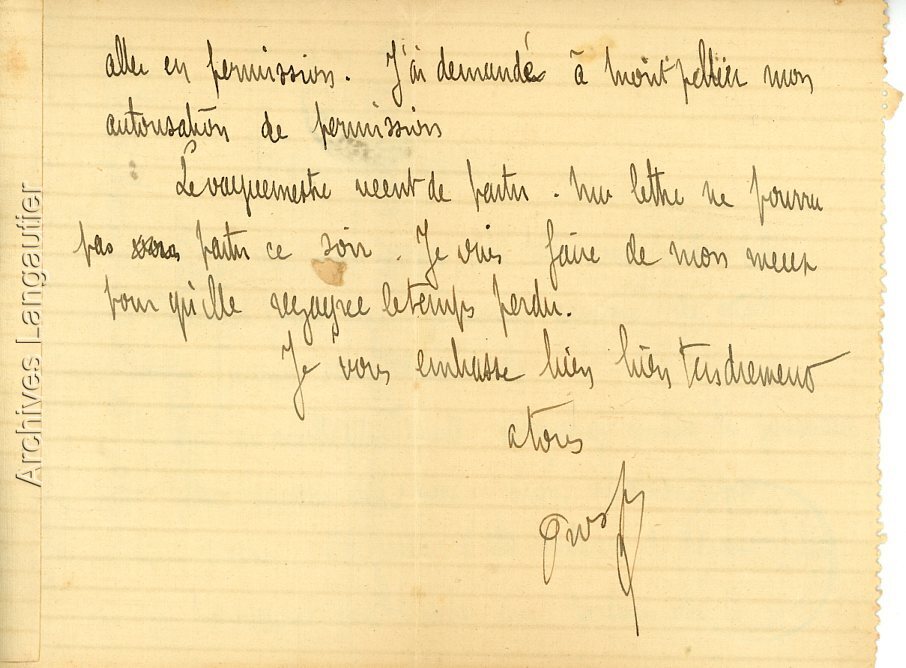 aller en permission. J'ai demandé à Montpellier mon
autorisation de permission
Le vaguemestre vient de partir. Ma lettre ne pourra
pas partir ce soir. Je vais faire de mon mieux
pour qu'elle regagne le temps perdu.
Je vous embrasse bien bien tendrement
a tous
Archives Langautier